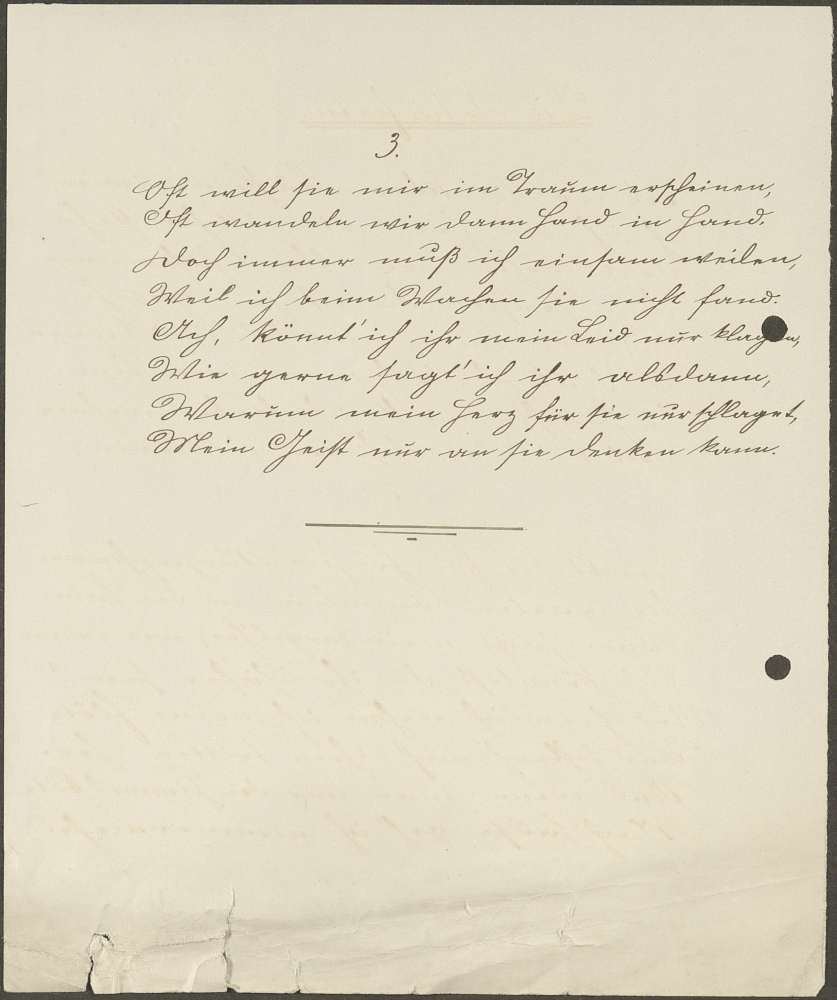 3.
Oft will sie mir im Traum erscheinen,
Oft wandeln wir dann Hand in Hand.
Doch immer muß ich einsam weilen,
Weil ich beim Wachen sie nicht fand.
Ach, könnt' ich ihr mein Leid nur klagen,
Wie gerne sagt' ich ihr alsdann,
Warum mein Herz für sie nur schlaget,
Mein Geist nur an sie denken kann.